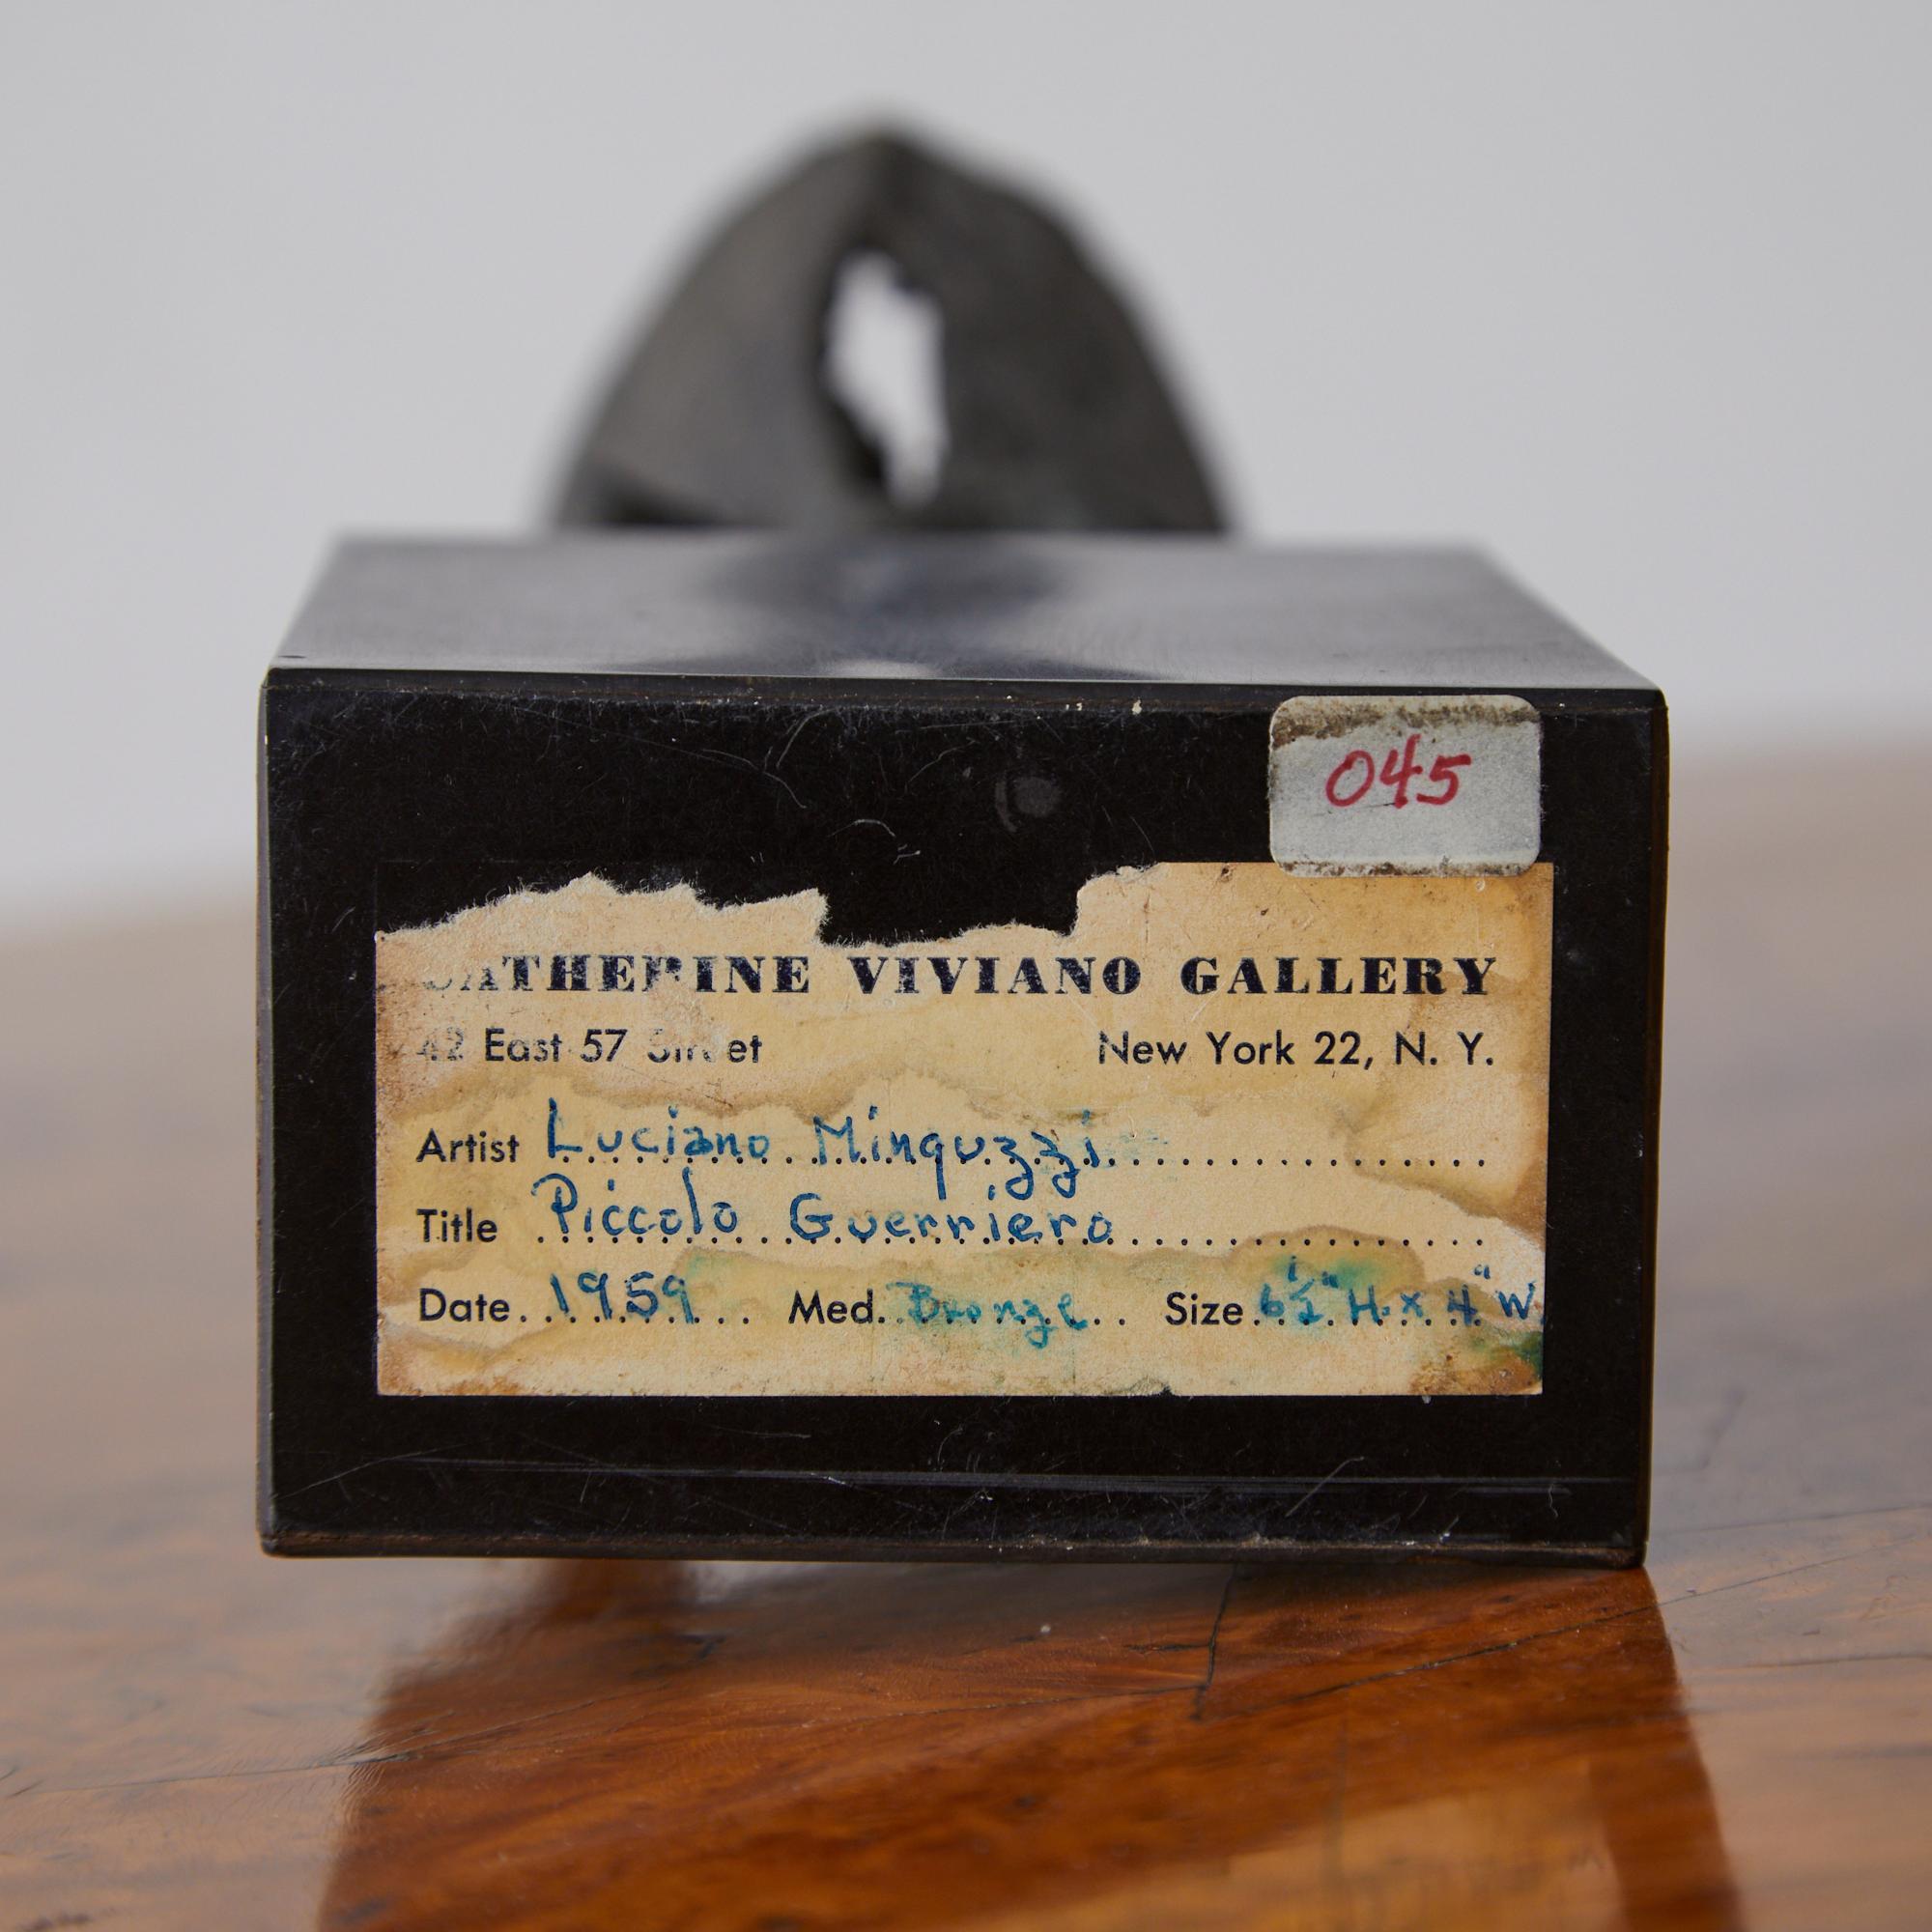 045
CATHERINE VIVIANO GALLERY
42 East 57 Street New York 22, N. Y.
Artist Luciano Minguzzi
Title Piccolo Guerriero
Date 1959 Med. Bronze Size 6½" H. x 4" W